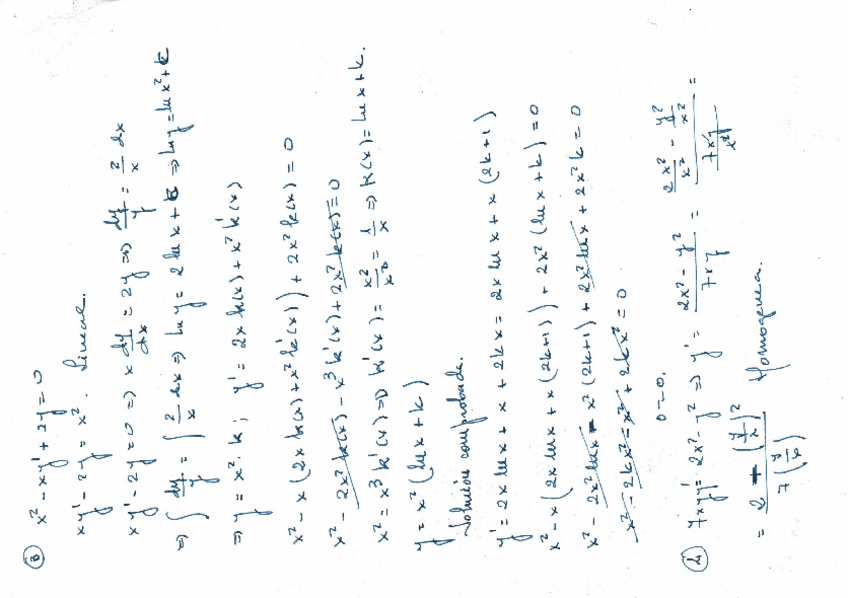 ③ x² - xy' + 2y = 0
xy' - 2y = x². Lineal.
xy' - 2y = 0 ⇒ x dy/dx = 2y ⇒ dy/y = 2/x dx
⇒ ∫ dy/y = ∫ 2/x dx ⇒ ln y = 2 ln x + k ⇒ ln y = ln x² + k
⇒ y = x² · k ; y' = 2x k(x) + x² k'(x)
x² - x (2x k(x) + x² k'(x)) + 2x² k(x) = 0
x² - 2x² k(x) - x³ k'(x) + 2x² k(x) = 0
x² = x³ k'(x) ⇒ k'(x) = x²/x³ = 1/x ⇒ k(x) = ln x + k.
y = x² (ln x + k)
Solución comprobada.
y' = 2x ln x + x + 2kx = 2x ln x + x (2k+1)
x² - x (2x ln x + x (2k+1)) + 2x² (ln x + k) = 0
x² - 2x² ln x - x² (2k+1) + 2x² ln x + 2x² k = 0
x² - 2kx² - x² + 2kx² = 0
0 = 0.
④ 7xyy' = 2x² - y² ⇒ y' = (2x² - y²)/(7xy) = (2x²/x² - y²/x²)/(7xy/x²) =
= (2 - (y/x)²)/(7(y/x)) Homogenea.